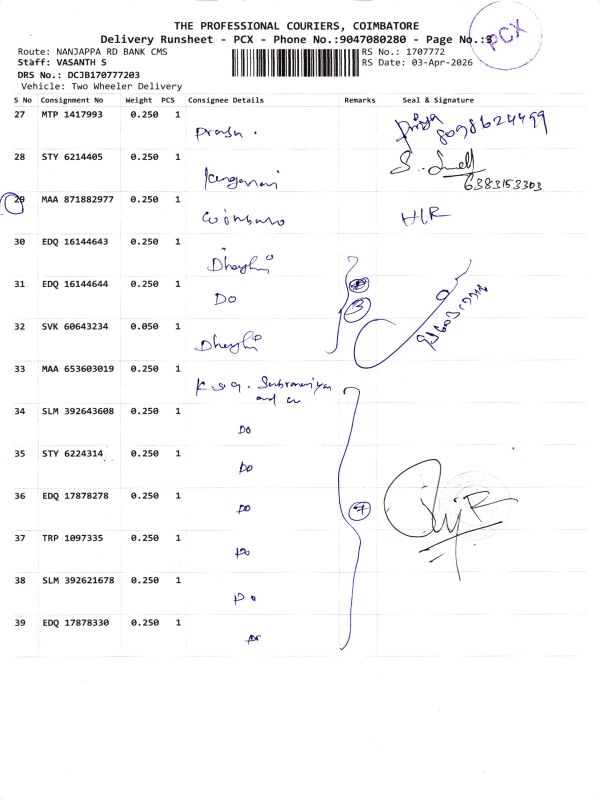 THE PROFESSIONAL COURIERS, COIMBATORE
Delivery Runsheet - PCX - Phone No.:9047080280 - Page No.:3
PCX
Route: NANJAPPA RD BANK CMS
RS No.: 1707772
Staff: VASANTH S
RS Date: 03-Apr-2026
DRS No.: DCJB170777203
Vehicle: Two Wheeler Delivery
S No Consignment No Weight PCS Consignee Details Remarks Seal & Signature
27 MTP 1417993 0.250 1
Priya
8098624499
28 STY 6214405 0.250 1
6383153303
29 MAA 871882977 0.250 1
H/R
30 EDQ 16144643 0.250 1
31 EDQ 16144644 0.250 1
DO
3
32 SVK 60643234 0.050 1
33 MAA 653603019 0.250 1
34 SLM 392643608 0.250 1
DO
35 STY 6224314 0.250 1
DO
36 EDQ 17878278 0.250 1
DO
7
37 TRP 1097335 0.250 1
DO
38 SLM 392621678 0.250 1
DO
39 EDQ 17878330 0.250 1